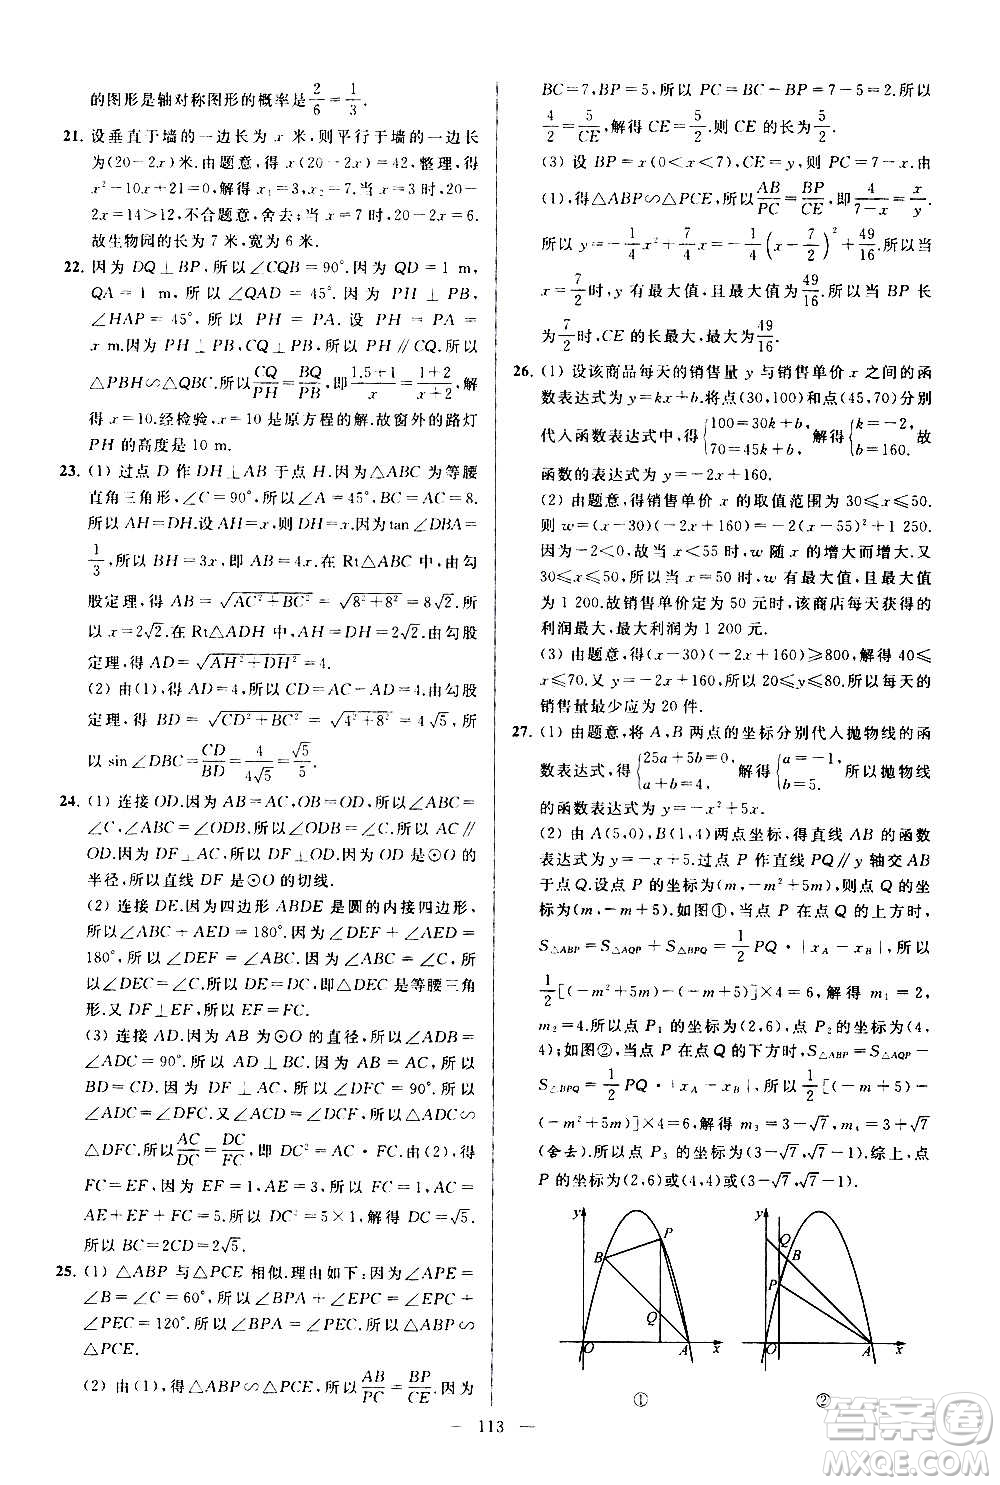 的图形是轴对称图形的概率是2/6=1/3.
21. 设垂直于墙的一边长为 x 米,则平行于墙的一边长
为(20-2x)米.由题意,得 x(20-2x)=42,整理,得
x²-10x+21=0,解得 x₁=3,x₂=7.当 x=3 时,20-
2x=14>12,不合题意,舍去;当 x=7 时,20-2x=6.
故生物园的长为 7 米,宽为 6 米.
22. 因为 DQ⊥BP,所以∠CQB=90°.因为 QD=1 m,
QA=1 m,所以∠QAD=45°.因为 PH⊥PB,
∠HAP=45°,所以 PH=PA.设 PH=PA=
x m.因为 PH⊥PB,CQ⊥PB,所以 PH∥CQ.所以
△PBH∽△QBC.所以CQ/PH=BQ/PB,即(1.5+1)/x=(1+2)/(x+2),解
得 x=10.经检验,x=10 是原方程的解.故窗外的路灯
PH 的高度是 10 m.
23. (1) 过点 D 作 DH⊥AB 于点 H.因为△ABC 为等腰
直角三角形,∠C=90°,所以∠A=45°,BC=AC=8.
所以 AH=DH.设 AH=x,则 DH=x.因为 tan∠DBA=
1/3,所以 BH=3x,因为在 Rt△ABC 中,由勾
股定理,得 AB=√(AC²+BC²)=√(8²+8²)=8√2.所
以 x=2√2.在 Rt△ADH 中,AH=DH=2√2.由勾股
定理,得 AD=√(AH²+DH²)=4.
(2) 由(1),得 AD=4,所以 CD=AC-AD=4.由勾
股定理,得 BD=√(CD²+BC²)=√(4²+8²)=4√5,所
以 sin∠DBC=CD/BD=4/4√5=√5/5.
24. (1) 连接 OD.因为 AB=AC,OB=OD.所以∠ABC=
∠C,∠ABC=∠ODB.所以∠ODB=∠C.所以 AC∥
OD.因为 DF⊥AC,所以 DF⊥OD.因为 OD 是⊙O 的
半径,所以直线 DF 是⊙O 的切线.
(2) 连接 DE.因为四边形 ABDE 是圆的内接四边形,
所以∠ABC+∠AED=180°.因为∠DEF+∠AED=
180°,所以∠DEF=∠ABC.因为∠ABC=∠C,所以
∠DEC=∠C.所以 DE=DC,即△DEC 是等腰三角
形.又 DF⊥EF,所以 EF=FC.
(3) 连接 AD.因为 AB 为⊙O 的直径,所以∠ADB=
∠ADC=90°.所以 AD⊥BC.因为 AB=AC,所以
BD=CD.因为 DF⊥AC,所以∠DFC=90°.所以
∠ADC=∠DFC.又∠ACD=∠DCF,所以△ADC∽
△DFC.所以AC/DC=DC/FC.所以 DC²=AC·FC.由(2),得
FC=EF.因为 EF=1,AE=3,所以 AC=
AE+EF+FC=5.所以 DC²=5×1,解得 DC=√5.
所以 BC=2CD=2√5.
25. (1) △ABP 与△PCE 相似.理由如下:因为∠APE=
∠B=∠C=60°,所以∠BPA+∠EPC=∠EPC+
∠PEC=120°.所以∠BPA=∠PEC.所以△ABP∽
△PCE.
(2) 由(1),得△ABP∽△PCE,所以AB/PC=BP/CE.因为
BC=7,BP=5,所以 PC=BC-BP=7-5=2.所以
4/2=5/CE,解得 CE=5/2.则 CE 的长为5/2.
(3) 设 BP=x(0<x<7),CE=y,则 PC=7-x.由
(1),得△ABP∽△PCE.所以AB/PC=BP/CE,即4/(7-x)=x/y.
所以 y=-1/4x²+7/4x=-1/4(x-7/2)²+49/16.所以当
x=7/2时,y 有最大值,最大值为49/16.所以当 BP 长
为7/2时,CE 的长最大,最大为49/16.
26. (1) 设该商品每天的销售量 y 与销售单价 x 之间的函
数表达式为 y=kx+b.将点(30,100)和点(45,70)分别
代入函数表达式中,得{100=30k+b, 70=45k+b, 解得{k=-2, b=160. 故
函数的表达式为 y=-2x+160.
(2) 由题意,得销售单价 x 的取值范围为 30≤x≤50.
则 w=(x-30)(-2x+160)=-2(x-55)²+1 250.
因为-2<0,故当 x<55 时,w 随 x 的增大而增大.又
30≤x≤50,所以当 x=50 时,w 有最大值,最大值
为 1 200.故销售单价定为 50 元时,该商店每天获得的
利润最大,最大利润为 1 200 元.
(3) 由题意,得(x-30)(-2x+160)≥800,解得 40≤
x≤70.又 y=-2x+160,所以 20≤y≤80.所以每天的
销售量最少应为 20 件.
27. (1) 由题意,将 A,B 两点的坐标分别代入抛物线的函
数表达式,得{25a+5b=0, a+b=4, 解得{a=-1, b=5. 所以抛物线
的函数表达式为 y=-x²+5x.
(2) 由 A(5,0),B(1,4)两点坐标,得直线 AB 的函数
表达式为 y=-x+5.过点 P 作直线 PQ∥y 轴交 AB
于点 Q.设点 P 的坐标为(m,-m²+5m),则点 Q 的坐
标为(m,-m+5).如图①,当点 P 在点 Q 的上方时,
S△ABP=S△AQP+S△BPQ=1/2PQ·|xA-xB|,所以
1/2[(-m²+5m)-(-m+5)]×4=6,解得 m₁=2,
m₂=4.所以点 P₁ 的坐标为(2,6),点 P₂ 的坐标为(4,
4);如图②,当点 P 在点 Q 的下方时,S△ABP=S△AQP-
S△BPQ=1/2PQ·|xA-xB|,所以1/2[(-m+5)-
(-m²+5m)]×4=6,解得 m₃=3-√7,m₄=3+√7
(舍去).所以点 P₃ 的坐标为(3-√7,√7-1).综上,点
P 的坐标为(2,6)或(4,4)或(3-√7,√7-1).
y
B
P
Q
O
A
x
①
y
Q
B
P
O
A
x
②
— 113 —
答案圈
MXQE.COM